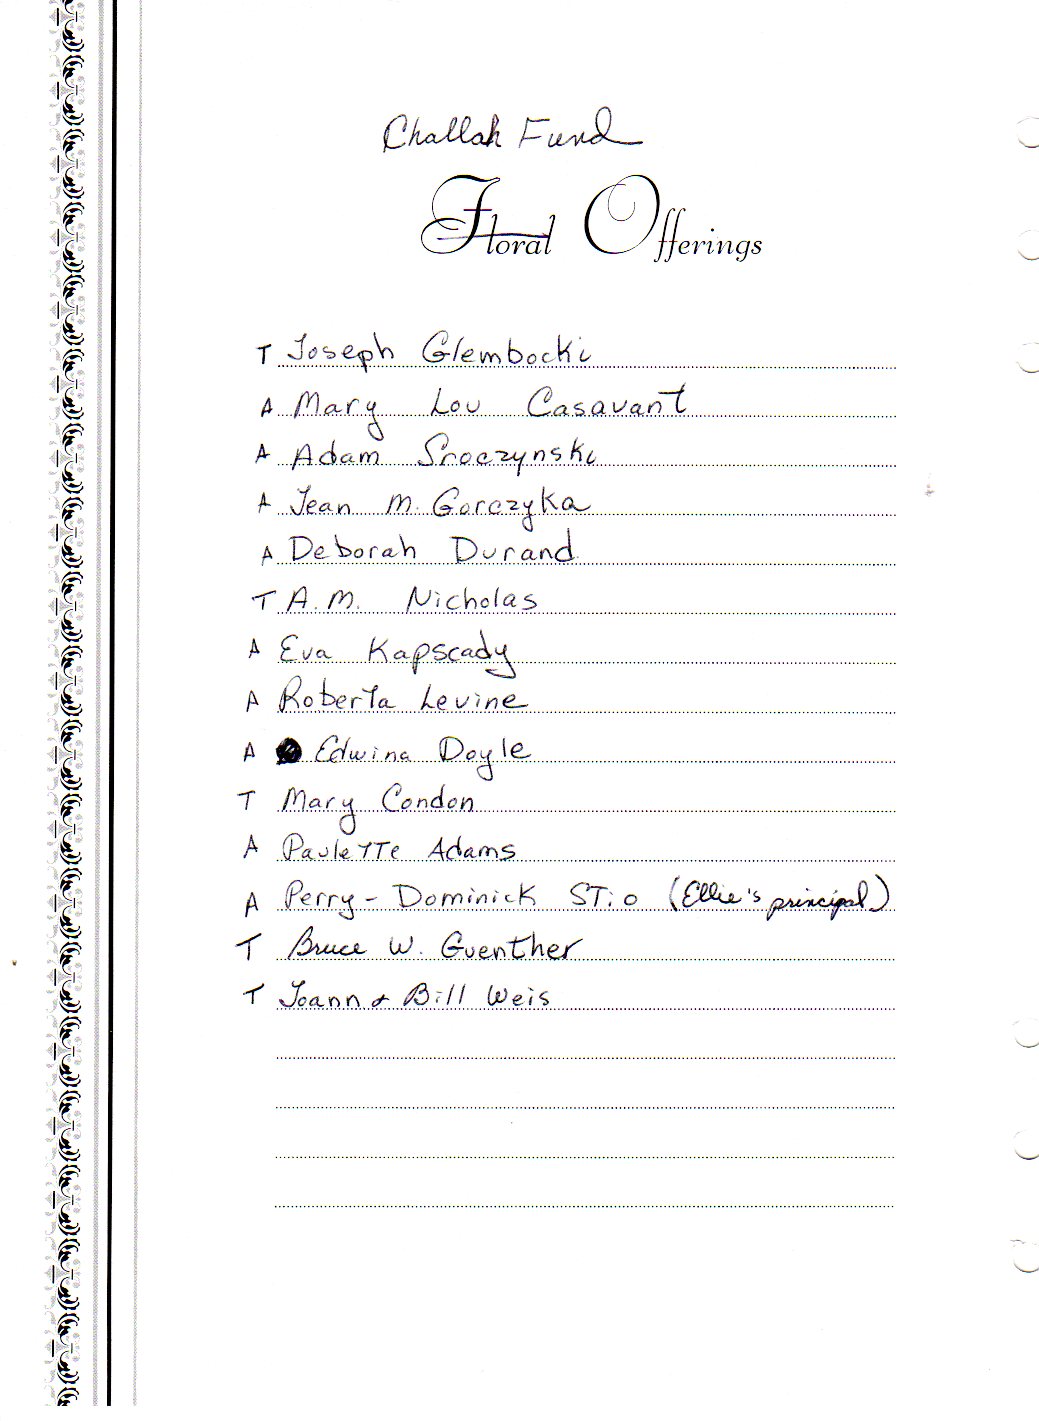 Challah Fund
Floral Offerings
T Joseph Glembocki
A Mary Lou Casavant
A Adam Sroczynski
A Jean M. Gorczyka
A Deborah Durand
T A.M. Nicholas
A Eva Kapscady
A Roberta Levine
A Edwina Doyle
T Mary Condon
A Paulette Adams
A Perry-Dominick STio (Ellie's principal)
T Bruce W. Guenther
T Joann & Bill Weis